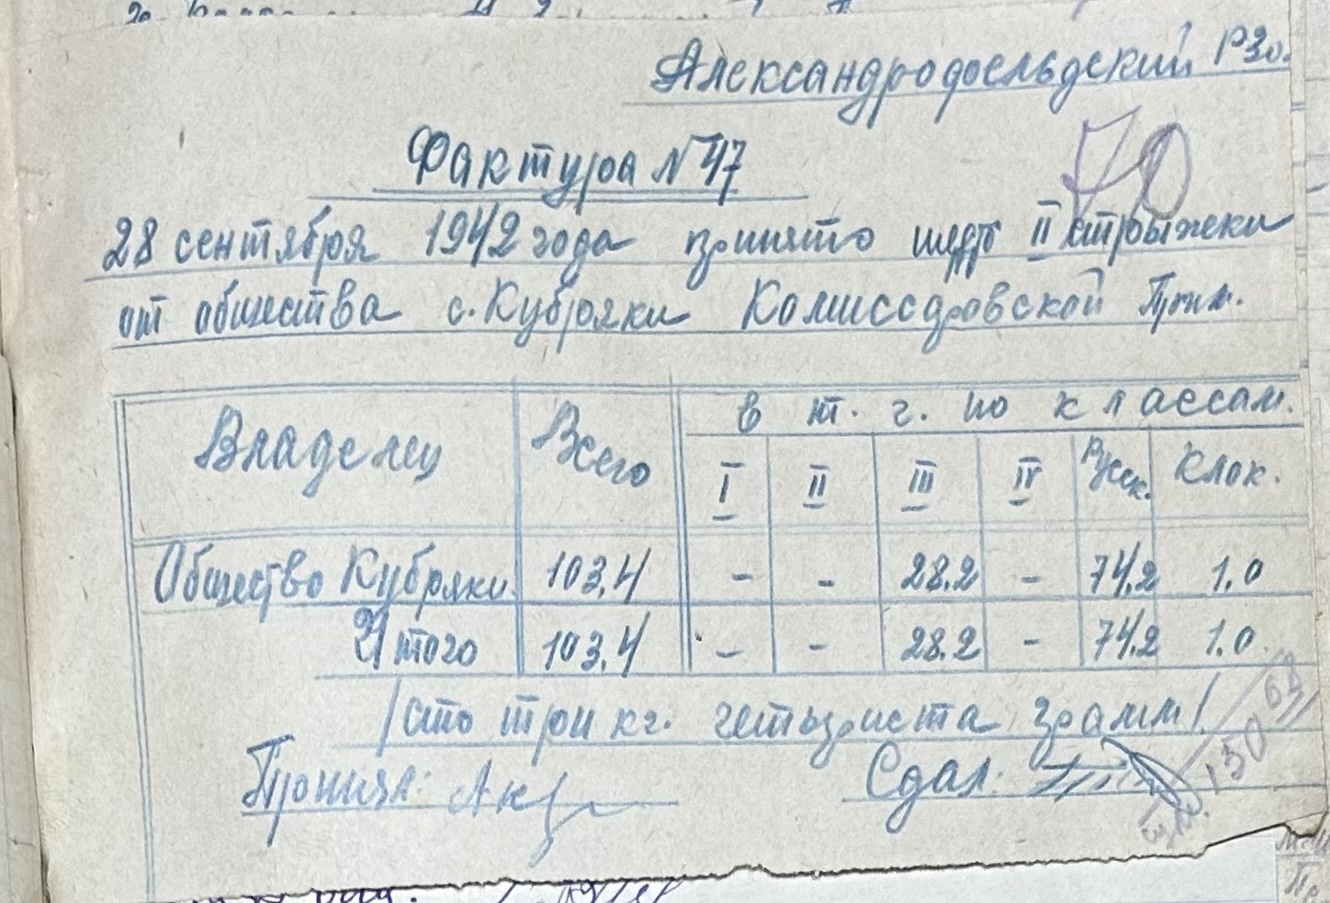 Александродосльдский РЗо.
70
Фактура № 47
28 сентября 1942 года принято шерст II стрыжки
от общества с. Кубряки Комиссаровской
Владелец Всего в т. г. по классам.
I II III IV клок.
Общество Кубряки. 103,4 - - 28.2 - 74.2 1.0
Итого 103,4 - - 28.2 - 74.2 1.0
/сто три кг. четыриста грамм/
Принял: Сдал:
150